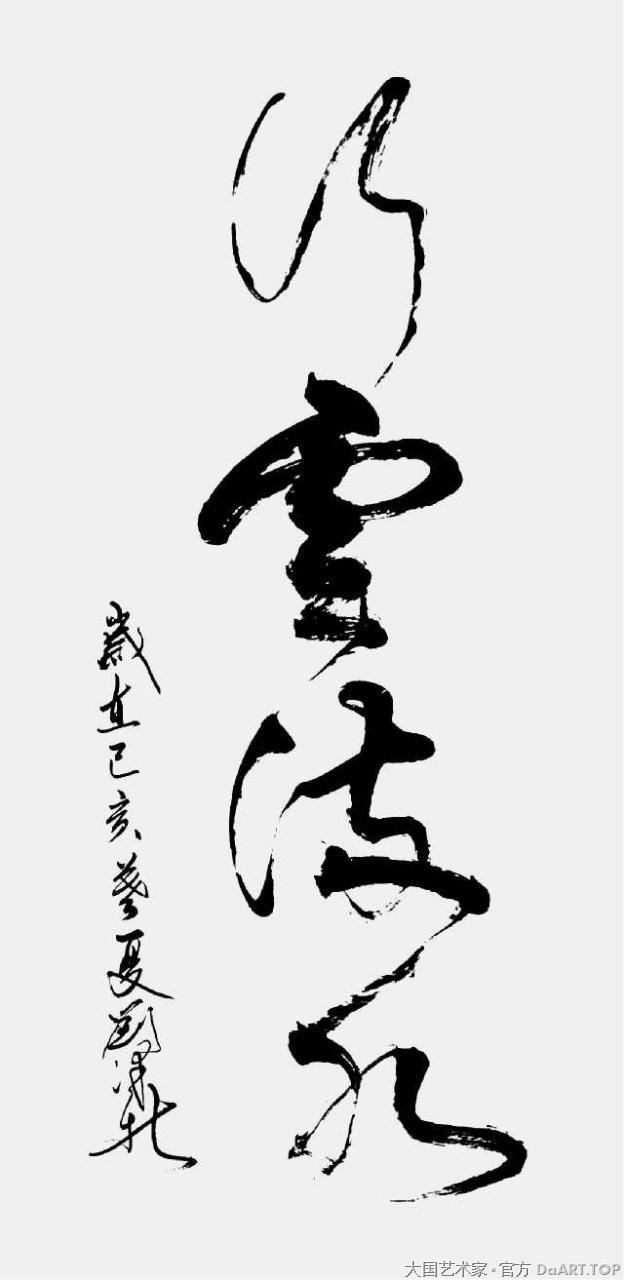 行雲流水
歲在己亥夏劉
大国艺术家·官方 DaART.TOP